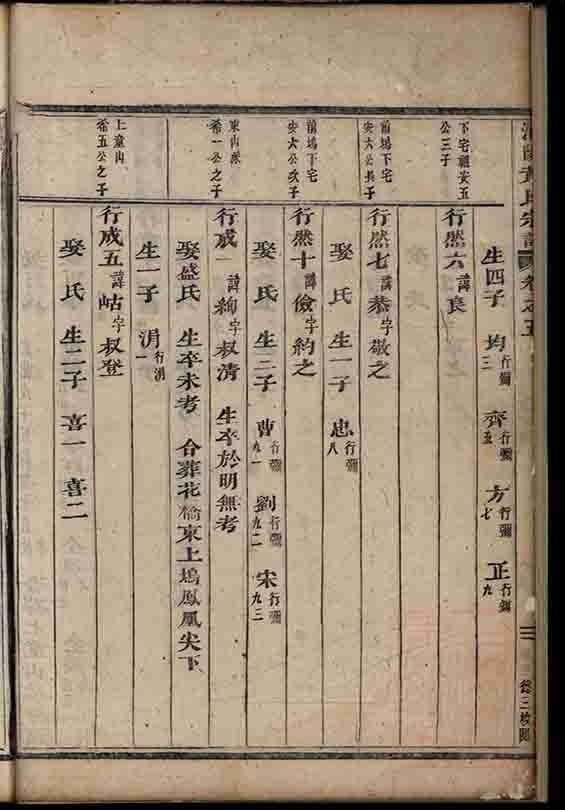 黃氏宗譜 卷之五
生四子 均行彌三 齊行彌五 方行彌七 正行彌九
下宅祖安五
公三子
行然六 諱良
前塢下宅
安六公長子
行然七 諱恭 字敬之
娶 氏 生一子 忠行彌八
前塢下宅
安六公次子
行然十 諱儉 字約之
娶 氏 生三子 曹行彌九一 劉行彌九二 宋行彌九三
東山派
希一公之子
行成一 諱絢 字叔清 生卒於明無考
娶盛氏 生卒未考 合葬花橋東上塢鳳凰尖下
生一子 涓行涓一
上童山
希五公之子
行成五 諱岵 字叔登
娶 氏 生二子 喜一 喜二